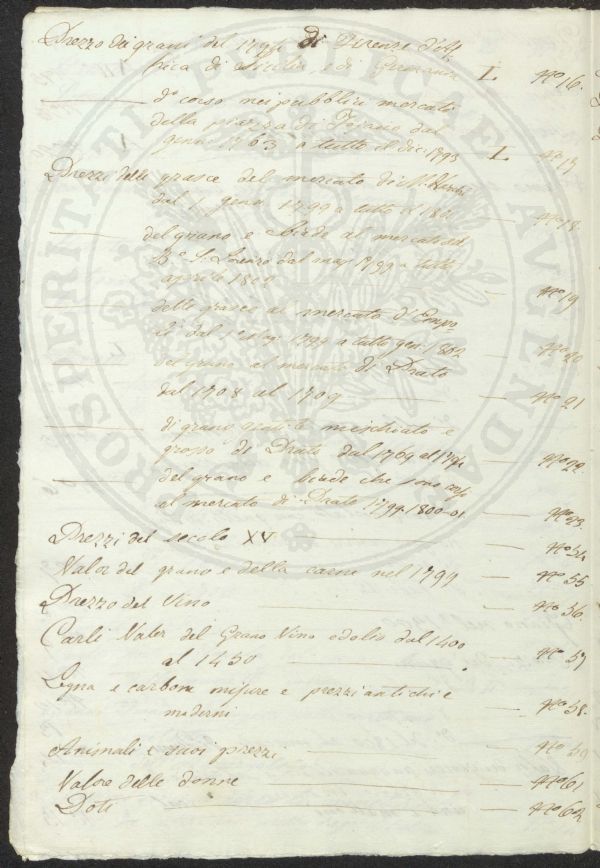 Prezzo dei grani del 1794 di Firenze d'Af
frica di Sicilia, e di Germania L No 16.
d.o corso nei pubblici mercati
della piazza di Fojano dal
genn: 1763 a tutto il dic: 1793 L No 17
Prezzi delle grasce del mercato di M. Varchi
dal 1 genn. 1799 a tutto il 1802 No 18.
del grano e biade al mercato del
B.o S. Lorenzo dal mag. 1799 a tutto
aprile 1800 No 19
delle grasce al mercato d'Empo
li dal 1799 a tutto gen: 1802 No 20
del grano al mercato di Prato
dal 1708 al 1709 No 21
di grano gentile mischiato e
grosso di Prato dal 1769 al No 22
del grano e biade che sono corsi
al mercato di Prato 1799-1800-01 No 23.
Prezzi del secolo XV No 54
Valor del grano e della carne nel 1799 No 55
Prezzo del Vino No 56.
Carli Valor del Grano Vino ed olio dal 1400
al 1450 No 57
Legna e carbone misure e prezzi antichi e
moderni No 58.
Animali e suoi prezzi No 59
Valore delle donne No 61
Doti No 62
PROSPERITATI PUBLICAE AUGENDAE